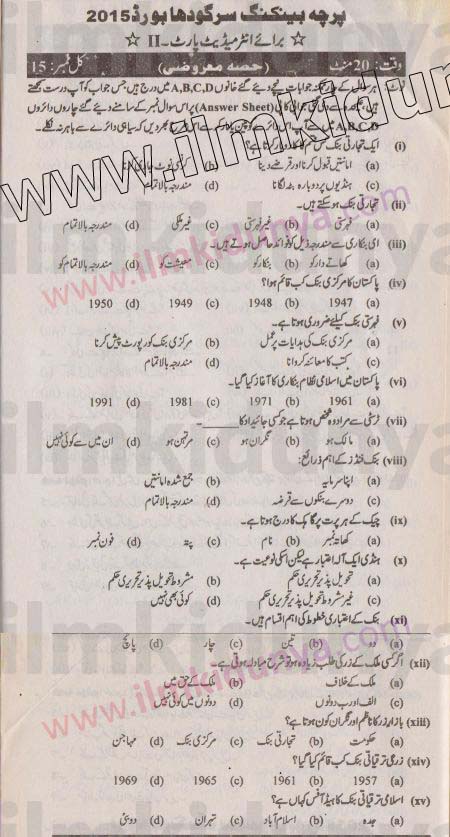 پرچہ بینکنگ سرگودھا بورڈ 2015
☆ برائے انٹرمیڈیٹ پارٹ ۔ II ☆
وقت: 20 منٹ (حصہ معروضی) کل نمبر: 15
نوٹ: ہر سوال کے چار ممکنہ جوابات نیچے دیئے گئے خانوں A,B,C,D میں درج ہیں جس جواب کو آپ درست سمجھتے
(Answer Sheet) پر اس سوال نمبر کے سامنے دیئے گئے چاروں دائروں
A,B,C,D میں سے
(i) ایک تجارتی بنک
(a) امانتیں قبول کرنا اور قرضے دینا (b) کرنسی نوٹ جاری کرنا
(c) ہنڈیوں پر دوبارہ بٹہ لگانا (d) مندرجہ بالا تمام
(ii) تجارتی بنک ہو سکتے ہیں۔
(a) فہرستی (b) غیر فہرستی (c) غیر ملکی (d) مندرجہ بالا تمام
(iii) ای بنکاری سے مندرجہ ذیل کو فوائد حاصل ہوتے ہیں۔
(a) کھاتے دار کو (b) بنکار کو (c) معیشت کو (d) مندرجہ بالا تمام کو
(iv) پاکستان کا مرکزی بنک کب قائم ہوا؟
(a) 1947 (b) 1948 (c) 1949 (d) 1950
(v) فہرستی بنک کیلئے ضروری ہوتا ہے۔
(a) مرکزی بنک کی ہدایات پر عمل (b) مرکزی بنک کو رپورٹ پیش کرنا
(c) کتب کا معائنہ کروانا (d) مندرجہ بالا تمام
(vi) پاکستان میں اسلامی نظام بنکاری کا آغاز کیا گیا۔
(a) 1961 (b) 1971 (c) 1981 (d) 1991
(vii) ٹرسٹی سے مراد وہ شخص ہوتا ہے جو کسی جائیداد کا ______۔
(a) مالک ہو (b) نگران ہو (c) مرتہن ہو (d) ان میں سے کوئی نہیں
(viii) بنک فنڈز کے اہم ذرائع:
(a) اپنا سرمایہ (b) جمع شدہ امانتیں
(c) دوسرے بنکوں سے قرضہ (d) مندرجہ بالا تمام
(ix) چیک کے ہر پرت پر گاہک کا درج ہوتا ہے۔
(a) کھاتہ نمبر (b) نام (c) پتہ (d) فون نمبر
(x) ہنڈی ایک آلہ اعتبار ہے لیکن اسکی نوعیت ہے۔
(a) تحویل پذیر تحریری حکم (b) مشروط تحویل پذیر تحریری حکم
(c) غیر مشروط تحویل پذیر تحریری حکم (d) کوئی بھی نہیں
(xi) بنک کے اعتباری خطوط کی اہم اقسام ہیں۔
(a) دو (b) تین (c) چار (d) پانچ
(xii) اگر کسی ملک کے زر کی طلب زیادہ ہو تو شرح مبادلہ ہوتی ہے۔
(a) ملک کے خلاف (b) ملک کے حق میں
(c) الف اور ب دونوں (d) دونوں میں کوئی نہیں
(xiii) بازار زر کا ناظم اور نگران کون ہوتا ہے؟
(a) حکومت (b) تجارتی بنک (c) مرکزی بنک (d) مہاجن
(xiv) زرعی ترقیاتی بنک کب قائم کیا گیا؟
(a) 1957 (b) 1961 (c) 1965 (d) 1969
(xv) اسلامی ترقیاتی بنک کا ہیڈ آفس کہاں ہے؟
(a) جدہ (b) اسلام آباد (c) تہران (d) دوبئی
www.ilmkidunya.com